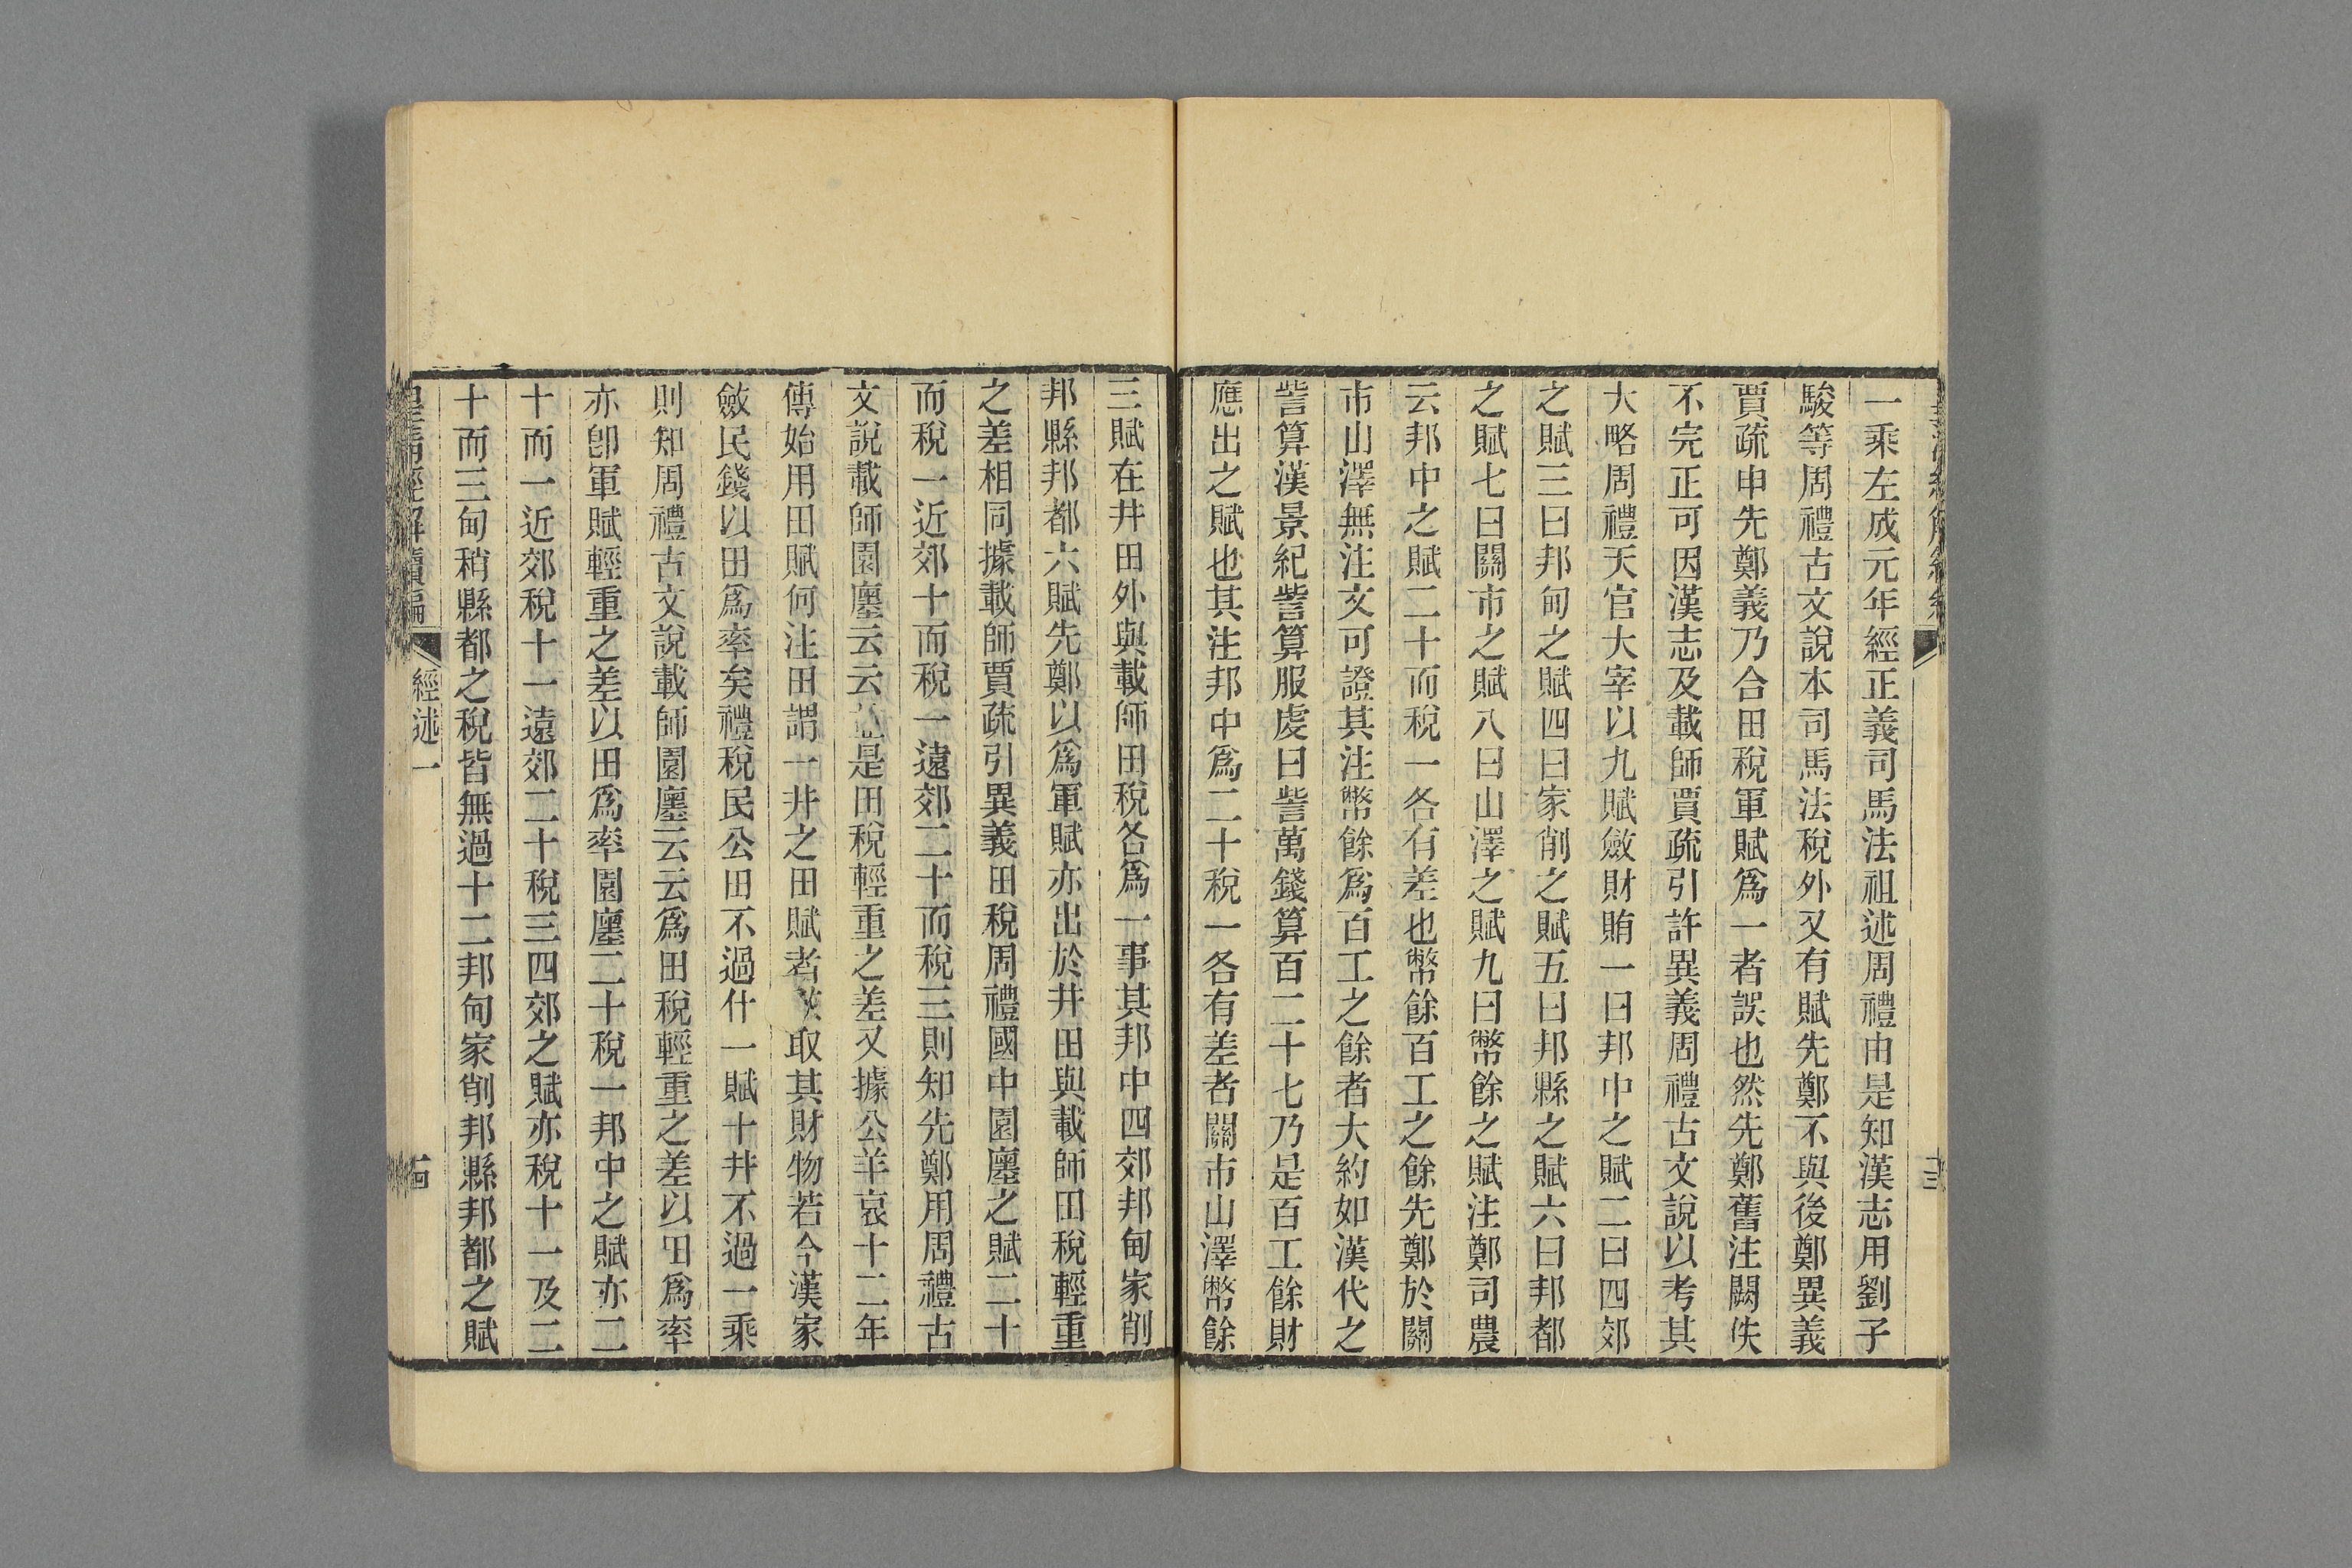 一乘左成元年經正義司馬法祖述周禮由是知漢志用劉子
駿等周禮古文說本司馬法稅外又有賦先鄭不與後鄭異義
賈疏申先鄭義乃合田稅軍賦爲一者誤也然先鄭舊注闕佚
不完正可因漢志及載師賈疏引許異義周禮古文說以考其
大略周禮天官大宰以九賦斂財賄一曰邦中之賦二曰四郊
之賦三曰邦甸之賦四曰家削之賦五曰邦縣之賦六曰邦都
之賦七曰關市之賦八曰山澤之賦九曰幣餘之賦注鄭司農
云邦中之賦二十而稅一各有差也幣餘百工之餘先鄭於關
市山澤無注文可證其注幣餘爲百工之餘者大約如漢代之
訾算漢景紀訾算服虔曰訾萬錢算百二十七乃是百工餘財
應出之賦也其注邦中爲二十稅一各有差者關市山澤幣餘
三賦在井田外與載師田稅各爲一事其邦中四郊邦甸家削
邦縣邦都六賦先鄭以爲軍賦亦出於井田與載師田稅輕重
之差相同據載師賈疏引異義田稅周禮國中園廛之賦二十
而稅一近郊十而稅一遠郊二十而稅三則知先鄭用周禮古
文說載師園廛云云是田稅輕重之差又據公羊哀十二年
傳始用田賦何注田謂一井之田賦者取其財物若今漢家
斂民錢以田爲率矣禮稅民公田不過什一賦十井不過一乘
則知周禮古文說載師園廛云云爲田稅輕重之差以田爲率
亦卽軍賦輕重之差以田爲率園廛二十稅一邦中之賦亦二
十而一近郊稅十一遠郊二十稅三四郊之賦亦稅十一及二
十而三甸稍縣都之稅皆無過十二邦甸家削邦縣邦都之賦
皇清經解續編 經述一 十四